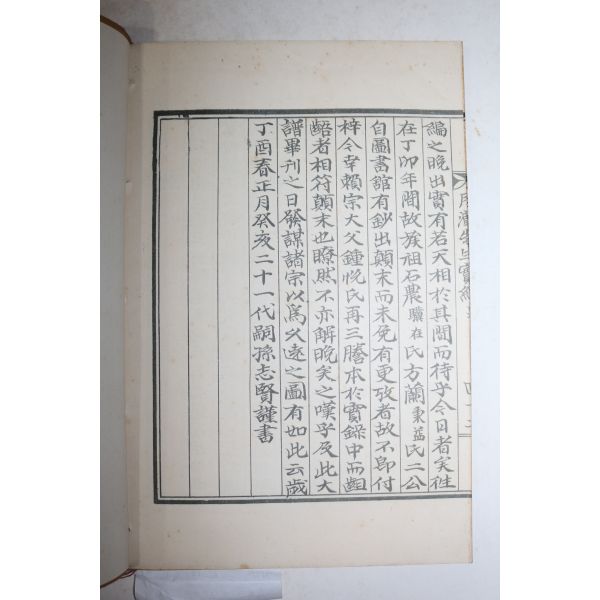 編之晩出實有若天相於其間而待乎今日者矣往
在丁卯年間故族祖石農驥在氏方蘭秉益氏二公
自圖書舘有鈔出顚末而未免有更攷者故不卽付
梓今幸賴宗大父鍾悅氏再三謄本於實錄中而齟
齬者相符顚末也瞭然不亦解晩矣之嘆乎及此大
譜畢刊之日發謀諸宗以爲久遠之圖有如此云歲
丁酉春正月癸亥二十一代嗣孫志賢謹書